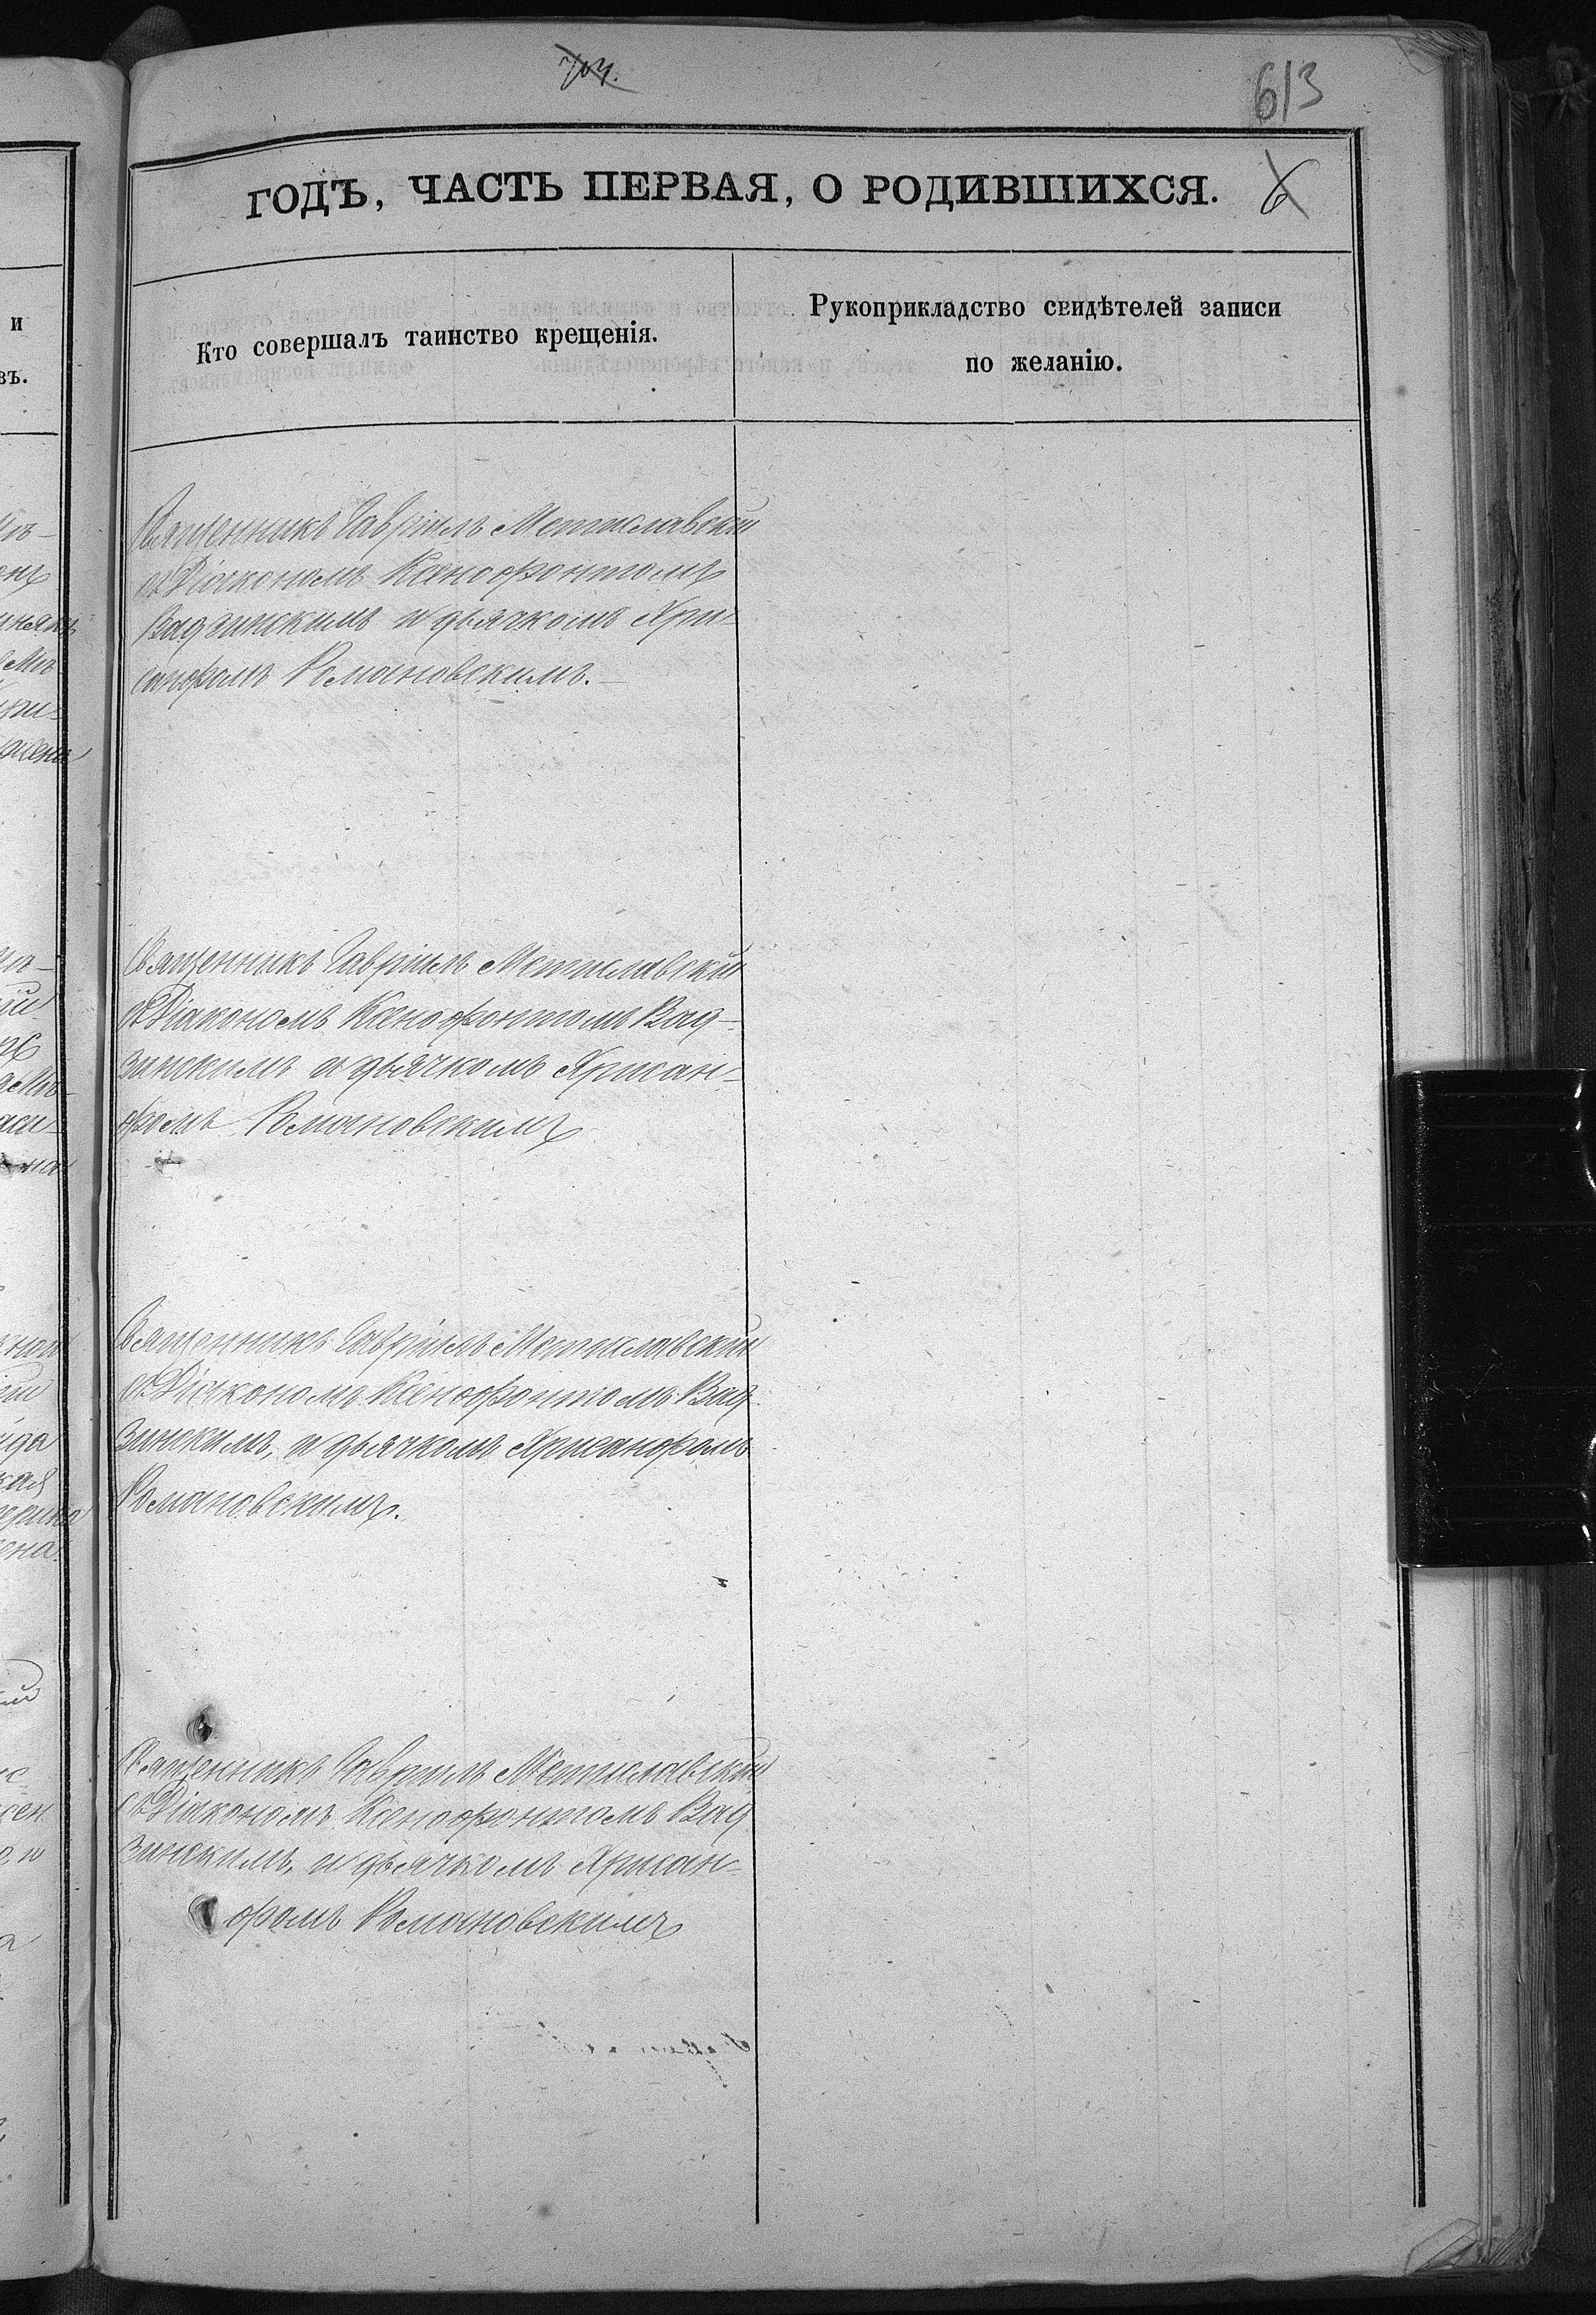 613
ГОДЪ, ЧАСТЬ ПЕРВАЯ, О РОДИВШИХСЯ. 6
и
въ.
Кто совершалъ таинство крещенія.
Рукоприкладство свидѣтелей записи
по желанію.
Священникъ Гавріилъ Мстиславскій
съ Діакономъ Ксенофонтомъ
Вадзинскимъ и дьячкомъ Хри-
санфомъ Романовскимъ.
Священникъ Гавріилъ Мстиславскій
съ Діакономъ Ксенофонтомъ Вад-
зинскимъ и дьячкомъ Хрисан-
фомъ Романовскимъ
Священникъ Гавріилъ Мстиславскій
съ Діакономъ Ксенофонтомъ Вад-
зинскимъ, и дьячкомъ Хрисанфомъ
Романовскимъ.
Священникъ Гавріилъ Мстиславскій
съ Діакономъ Ксенофонтомъ Вад
зинскимъ, и дьячкомъ Хрисан-
фомъ Романовскимъ